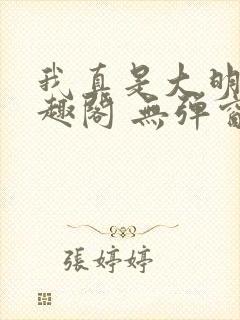 我真是大明
趣閣 無彈窗
張婷婷